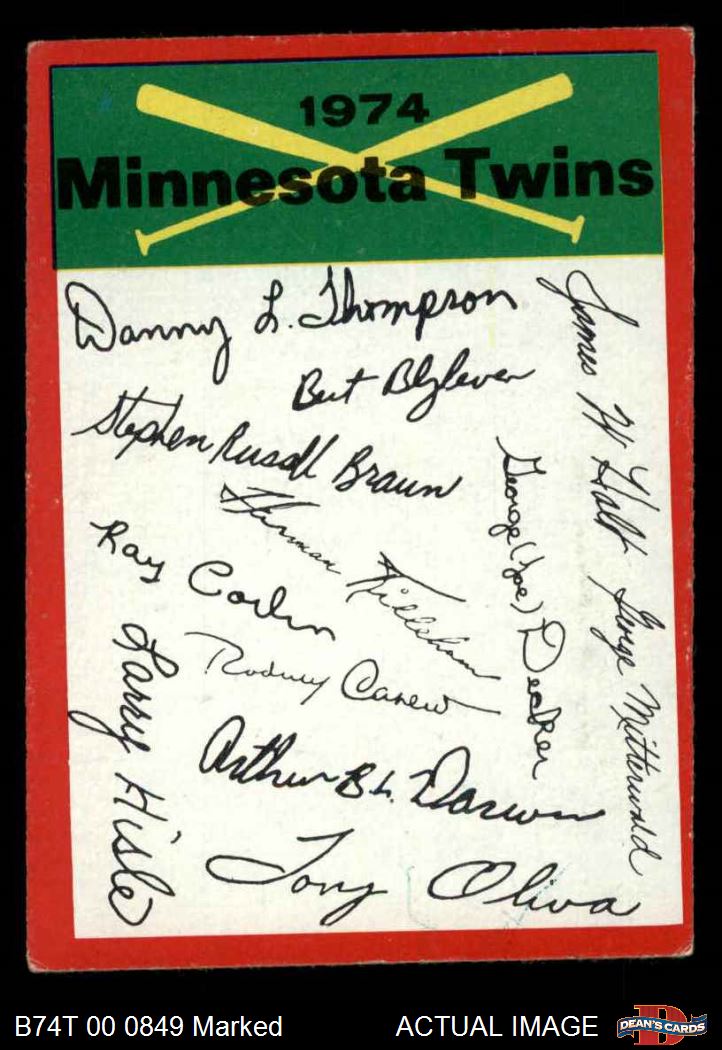 1974
Minnesota Twins
Danny L. Thompson
James W Holt
Bert Blyleven
Stephen Russell Braun
George (Joe) Decker
Harmon Killebrew
Ray Corbin
George Mitterwald
Larry Hisle
Rodney Carew
Arthur B L. Darwin
Tony Oliva
B74T 00 0849 Marked
ACTUAL IMAGE
D
DEAN'S CARDS